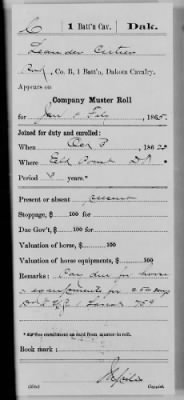 C 1 Batt'n Cav. Dak.
Leander Cartier
Co. B, 1 Batt'n, Dakota Cavalry.
Appears on
Company Muster Roll
for Jan & Feb, 1865.
Joined for duty and enrolled:
When 186
Where Elk Point D.T.
Period 3 years.*
Present or absent present
Stoppage, $ 100 for
Due Gov't, $ 100 for
Valuation of horse, $ 100
Valuation of horse equipments, $ 100
Remarks: Pay due for horse
& equipments for days
Due U.S. 1 Lariat 75¢
Book mark:
Copyist.